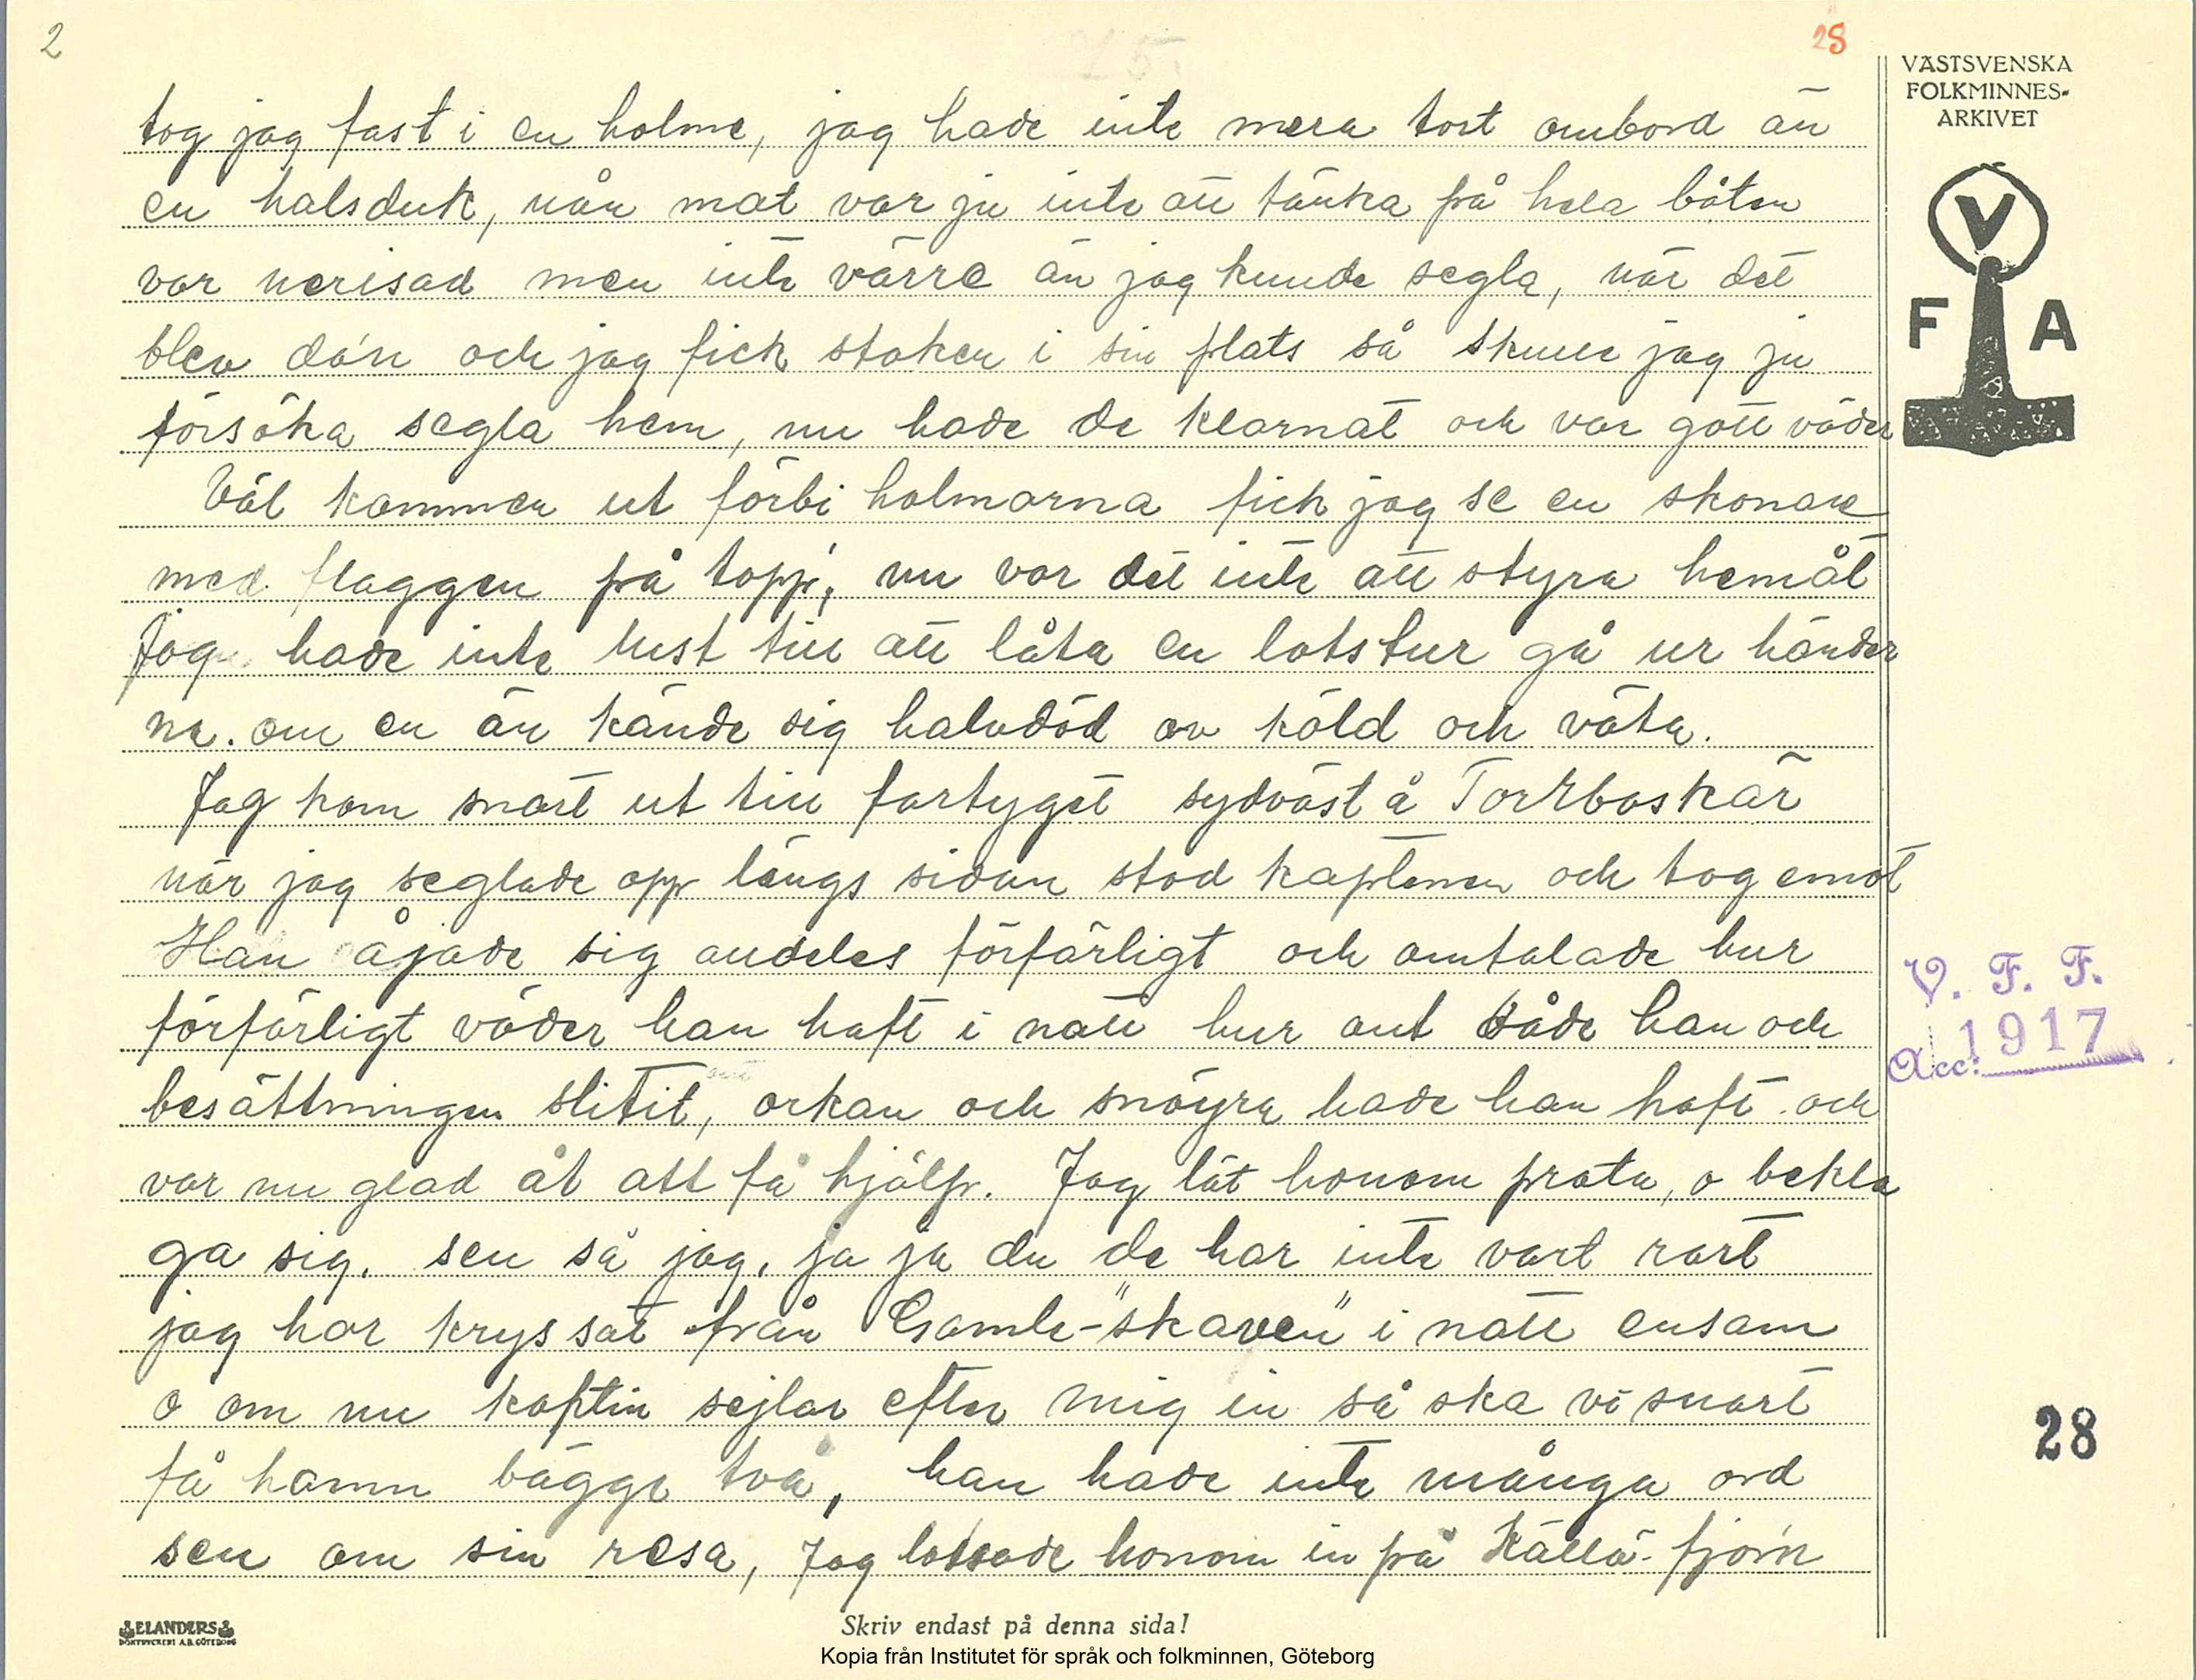 2
28
VÄSTSVENSKA
FOLKMINNES-
ARKIVET
V
F A
tog jag fast i en holme, jag hade inte mera tort ombord än
en halsduk, nån mat var ju inte att tänka på hela båten
var nerisad men inte värre än jag kunde segla, når det
blev da'n och jag fick staken i sin plats så skulle jag ju
försöka segla hem, nu hade de klarnat och var gott väder
Väl kommen ut förbi holmarna fick jag se en skonare
med flaggen på topp, nu var det inte att styra hemåt
Jag hade inte lust till att låta en lotstur gå ur händer
na. om en än kände sig halvdöd av köld och väta.
Jag kom snart ut till fartyget sydväst å Torrboskär
når jag seglade opp längs sidan stod kaptenen och tog emot
Han åjade sig audeles förfärligt och omtalade hur
förfärligt väder han haft i natt hur ont både han och
besättningen slitit, orkan och snöyra hade han haft och
var nu glad åt att få hjälp. Jag lät honom prata, o bekla
ga sig. sen sa jag. ja ja du de har inte vart rart
jag har kryssat från Gamle-"skaven" i natt ensam
o om nu kaptin sejlar efter mig in så ska vi snart
få hamn bägge två, han hade inte många ord
sen om sin resa, Jag lotsade honom in på Källö-fjorn
V. F. F.
Acc: 1917
28
ELANDERS
BOKTRYCKERI A.B. GÖTEBORG
Skriv endast på denna sida!
Kopia från Institutet för språk och folkminnen, Göteborg